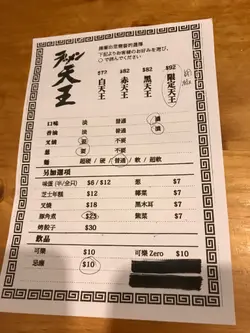 ラーメン
天王
$77
白天王
$82
赤天王
$82
黑天王
$92
限定天王
口味 淡 普通 濃
背油 淡 普通 濃
叉燒 要 不要
蔥 要 不要
麵 超硬 / 硬 / 普通 / 軟 / 超軟
另加選項
味蛋 (半/全只) $6 / $12 蔥 $7
芝士年糕 $12 椰菜 $7
叉燒 $18 黑木耳 $7
豚角煮 $25 飯菜 $7
烤餃子 $30
飲品
可樂 $10 可樂 Zero $10
忌廉 $10